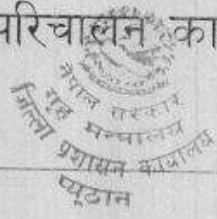 परिचालन का
नेपाल सरकार
गृह मन्त्रालय
जिल्ला प्रशासन कार्यालय
प्यूठान